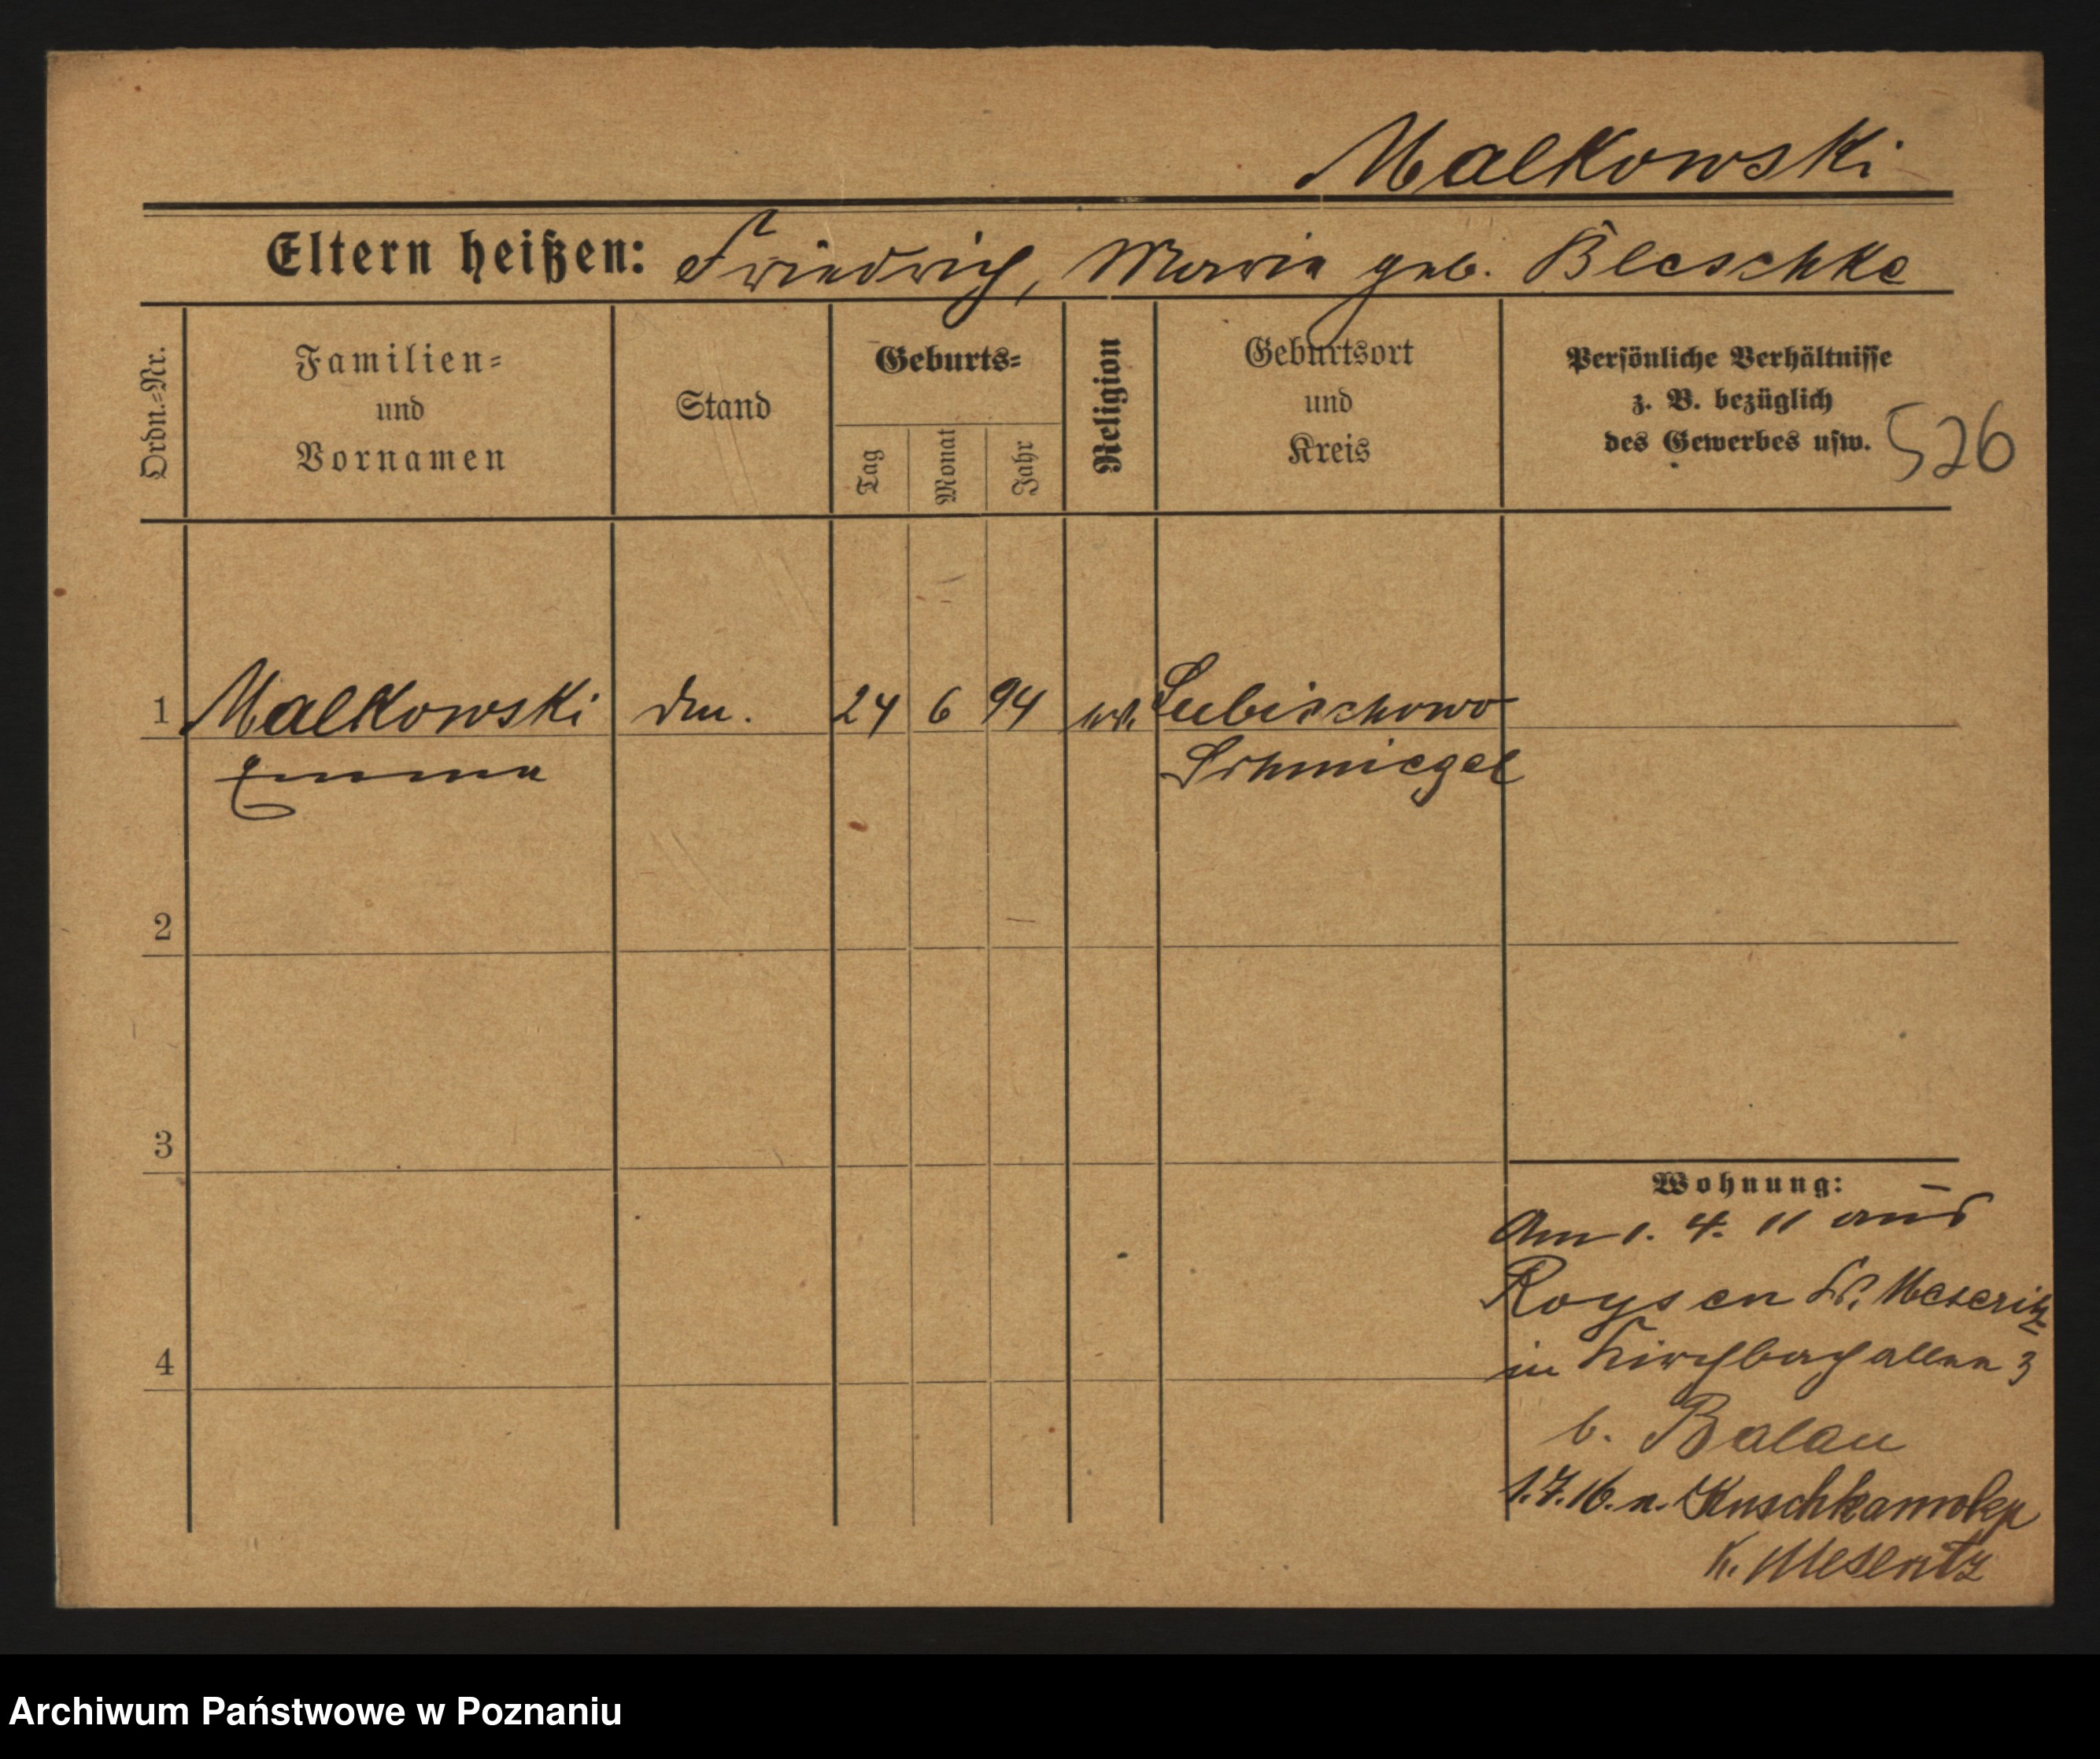 Malkowski
Eltern heißen: Friedrich, Maria geb. Bleschke
Ordn.-Nr.
Familien-
und
Vornamen
Stand
Geburts-
Tag
Monat
Jahr
Religion
Geburtsort
und
Kreis
Persönliche Verhältnisse
z. B. bezüglich
des Gewerbes usw.
526
1 Malkowski 24 6 94 ev. Lubischowo
Emma Schmiegel
2
3
4
Wohnung:
Am 1. 4. 11 aus
Roysen Kr. Meseritz
in Kirchbachallee 3
b. Balau
1.7.16. n. Kuschkamolep
K. Meseritz
Archiwum Państwowe w Poznaniu